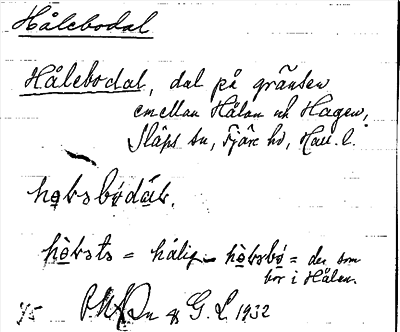 Hålebodal
Hålebodal, dal på gränsen
emellan Hålan och Hagen,
Släps sn, Fjäre hd, Hall. l.
hǫbsbǫdáb.
hǫbsts = hålig - hǫbsbǫ = den som
bor i Hålen.
G. L. 1932